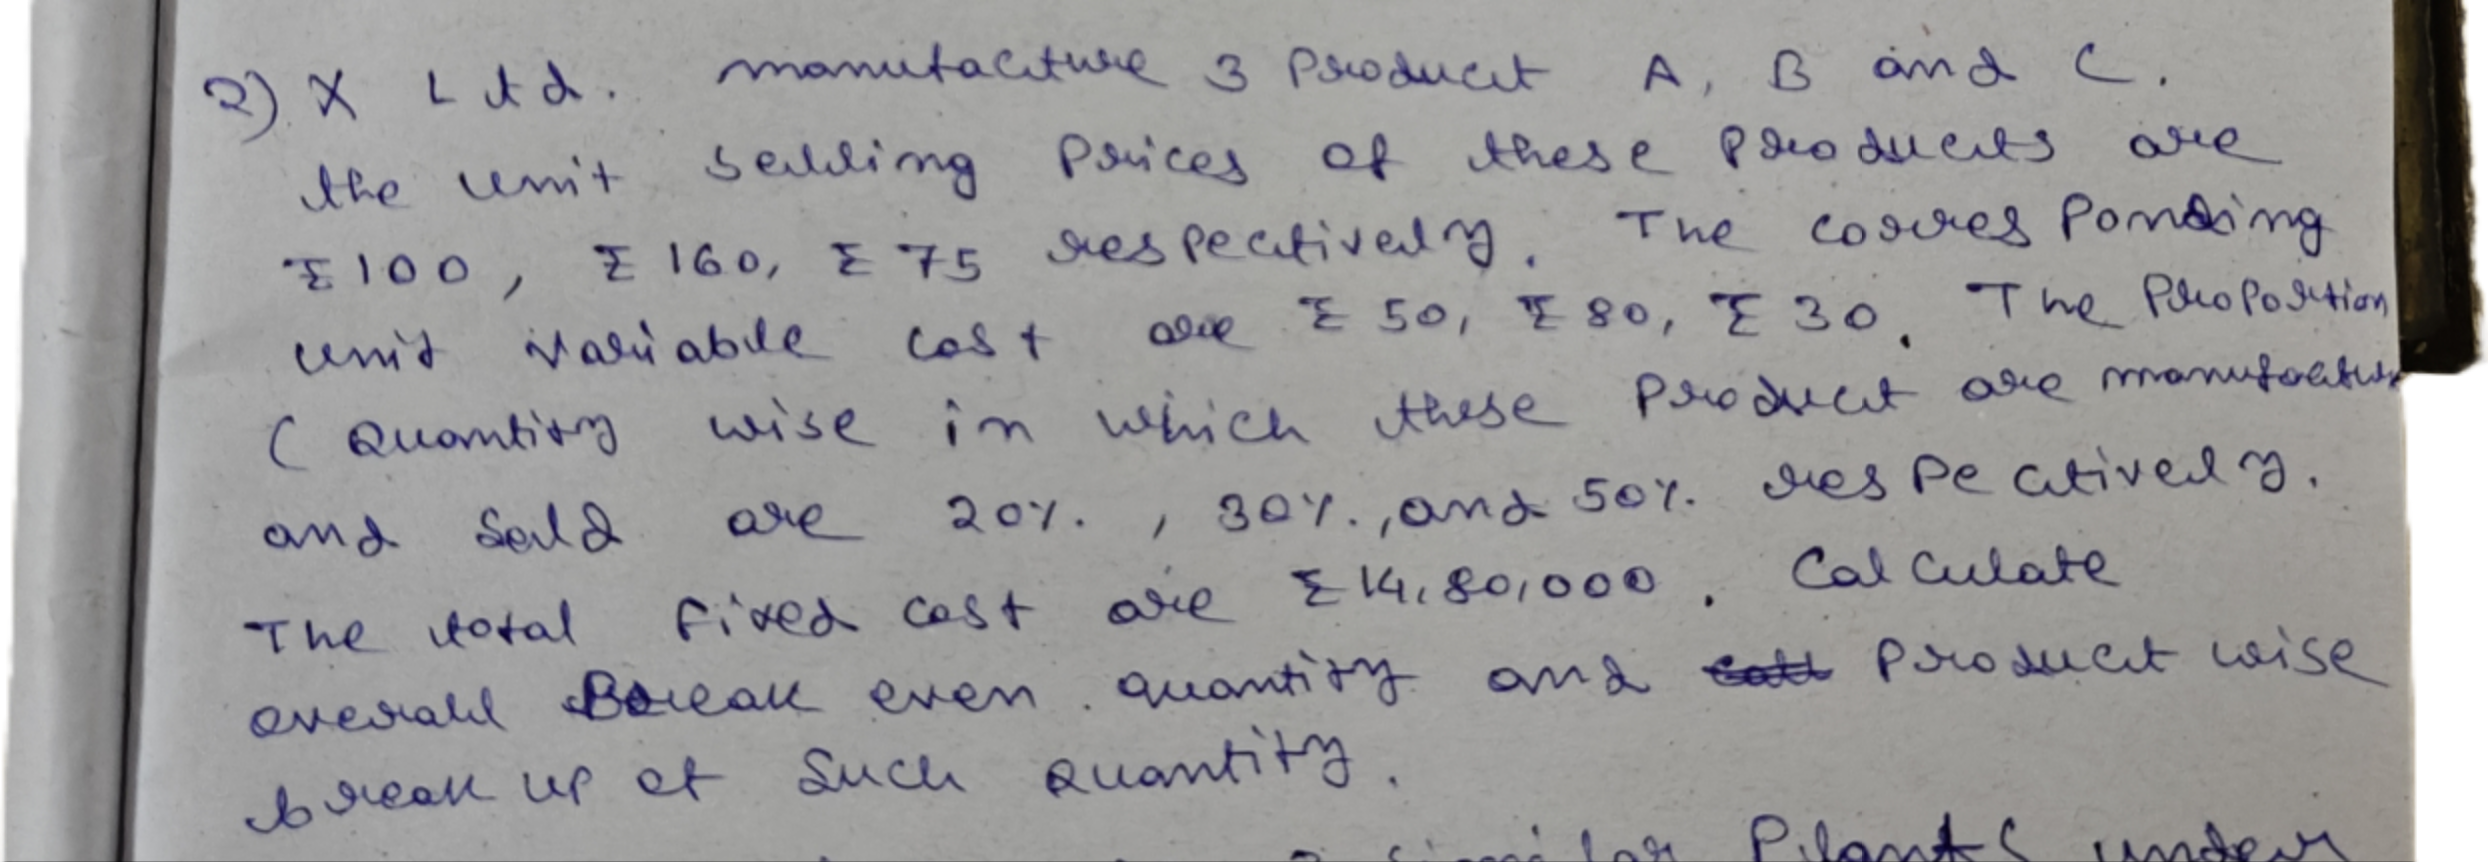 2) X Ltd. manufacture 3 Product A, B and C.
the unit selling Prices of these Products are
₹100, ₹160, ₹75 respectively. The corresponding
unit variable cost are ₹50, ₹80, ₹30. The Proportion
(Quantity wise in which these Product are manufactur
and Sold are 20%. , 30%., and 50%. respectively.
The total fixed cost are ₹14,80,000. Calculate
overall Break even quantity and Product wise
break up of Such Quantity.
Similar Plants under